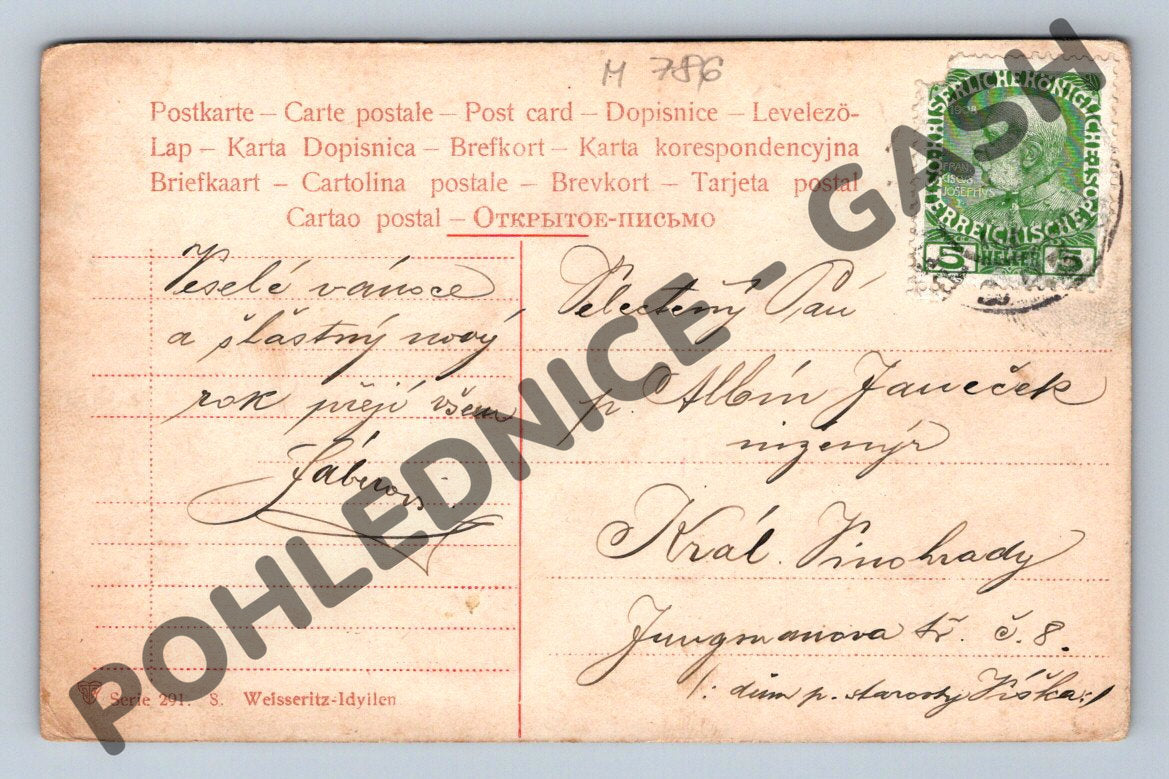 M 786
Postkarte – Carte postale – Post card – Dopisnice – Levelezö-
Lap – Karta Dopisnica – Brefkort – Karta korespondencyjna
Briefkaart – Cartolina postale – Brevkort – Tarjeta postal
Cartao postal – Открытое-письмо
Veselé vánoce
a šťastný nový
rok přejí všem
Fáberovi.
Velectěný Pán
p. Albín Janeček
inženýr
Král. Vinohrady
Jungmanova tř. č. 8.
/: dům p. starosty Víška :/
Serie 291. S. Weisseritz-Idyllen
KAISERLICHE KÖNIGLICHE
ÖSTERREICHISCHE POST
FRANC
JOSEPHVS
5 HELLER 5
POHLEDNICE - GASH